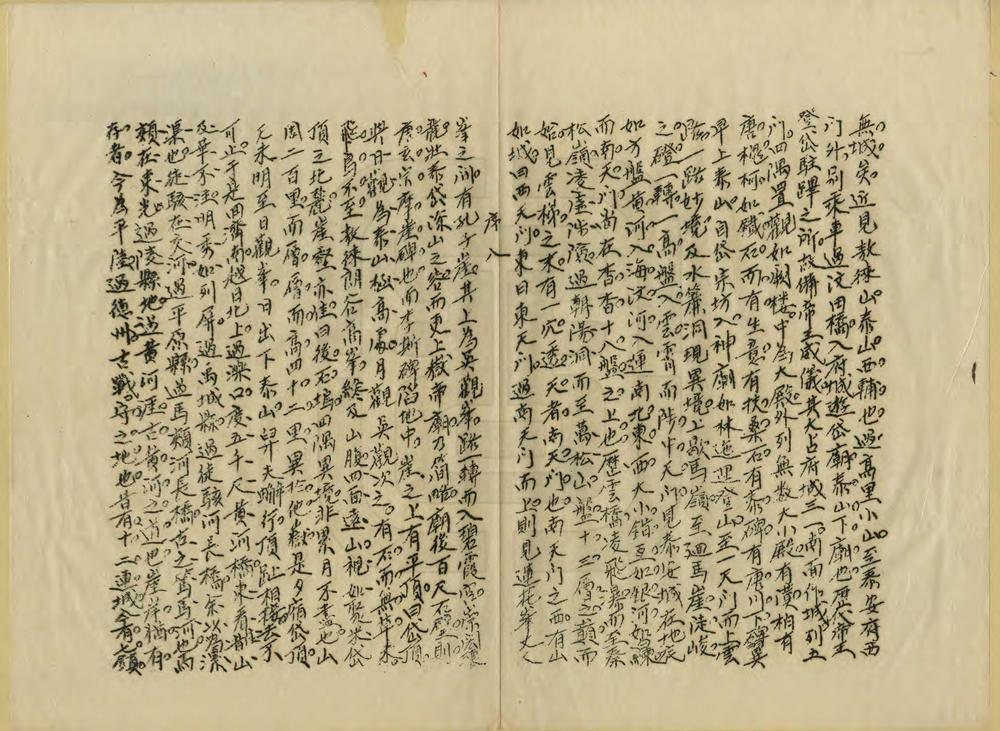 無城矣近見敖徠山泰山西輔也過蒿里小山至泰安府西
門外別乘車過汶田橋入府城遊岱廟泰山下廟也歷代帝王
登岱駐蹕之所故備帝王威儀其大占府城三一南面作城列五
門四隅置觀如闕樓中為大殿外列無數大小殿有漢柏有
唐槐柯如鐵石而有生意有扶桑石有泰碑有唐
早上泰山自岱宗坊入神廟如林迤邐登山至一天門而上雲
路一路妙境及水簾洞現異境上歇馬嶺至迴馬崖徒峻
之磴一轉一高盤入雲霄而陟中天門見泰安城在地底
如方盤黃河入海汶河入運南北東西大小錯互如銀河如練
而南天門尚在杳杳十八盤之上也歷雲橋凌飛瀑而至秦
松嶺凌虛嵴隘過朝陽洞而至萬松山盤十三層之巔而
始見雲梯之末有一穴透天者南天門也南天門之西有山
如城曰西天門東曰東天門過南天門而上則見蓮花峯丈人
序 八
峯之洞有孔子崖其上為吳觀峯路一轉而入碧霞宮崇閎
麗壯泰岱深山之容而更上嶽帝廟乃簡略廟後百尺石壁則
唐玄宗摩崖碑也而李斯碑陷地中崖之上有平頂曰岱頂
與日觀為泰山極高處月觀吳觀次之有石而無草木
飛鳥不至敖徠朗谷高峯終及山腹四面遠山視如聚米岱
頂之北麓崖壑亦佳曰後石塢四隅異境非累月不盡也山
周二百里而層層而高四十二里異於他嶽是夕宿岱頂
天未明至日觀峯日出下泰山舁夫聯行頂趾相接去不
可止于是回濟南越日北上過濼口度五千尺黃河橋東看鵲山
及華不注明秀如列屏過禹城縣過徒駭河長橋宗以為漯
渠也徒駭在交河過平原縣過馬頰河長橋古之篤馬河也馬
頰在東光過凌縣地過黃河涯古黃河之近也崖岸猶有
存者今為平陸過德州古戰守之地也昔有十二連城今有